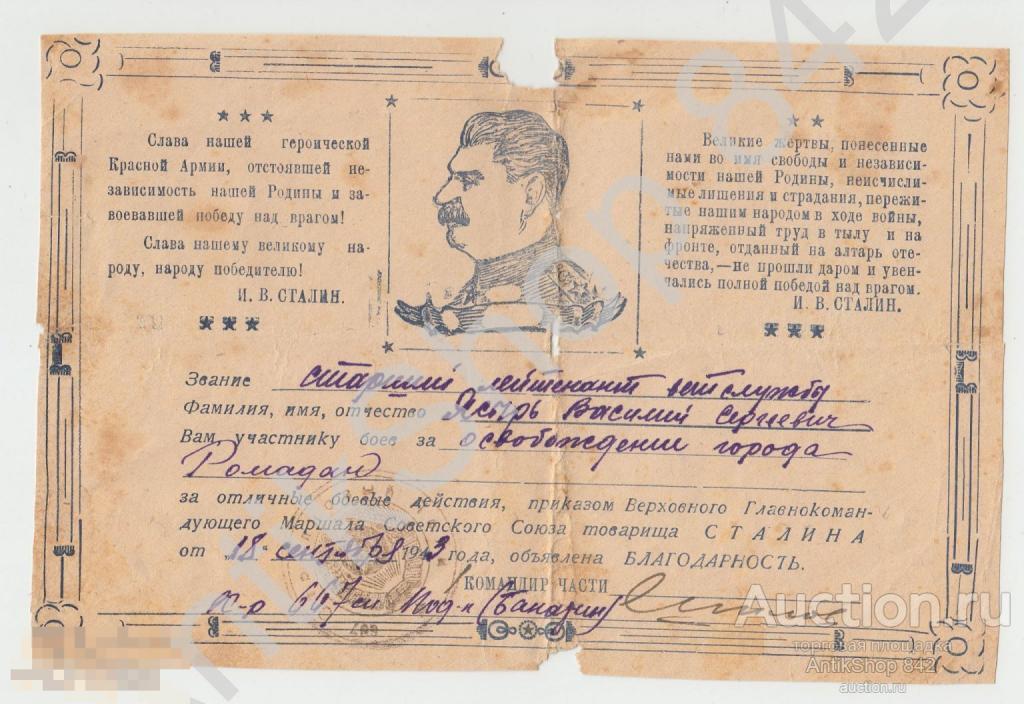 Слава нашей героической
Красной Армии, отстоявшей не-
зависимость нашей Родины и за-
воевавшей победу над врагом!
Слава нашему великому на-
роду, народу победителю!
И. В. СТАЛИН.
Великие жертвы, понесенные
нами во имя свободы и независи-
мости нашей Родины, неисчисли-
мые лишения и страдания, пережи-
тые нашим народом в ходе войны,
напряженный труд в тылу и на
фронте, отданный на алтарь оте-
чества,—не прошли даром и увен-
чались полной победой над врагом.
И. В. СТАЛИН.
Звание старший лейтенант ветслужбы
Фамилия, имя, отчество Ясырь Василий Сергеевич
Вам участнику боев за освобождении города
Ромадан
за отличные боевые действия, приказом Верховного Главнокоман-
дующего Маршала Советского Союза товарища СТАЛИНА
от 18 сентября 1943 года, объявлена БЛАГОДАРНОСТЬ.
КОМАНДИР ЧАСТИ
К-р 667 сп
Auction.ru
торговая площадка
AntikShop 842
auction.ru